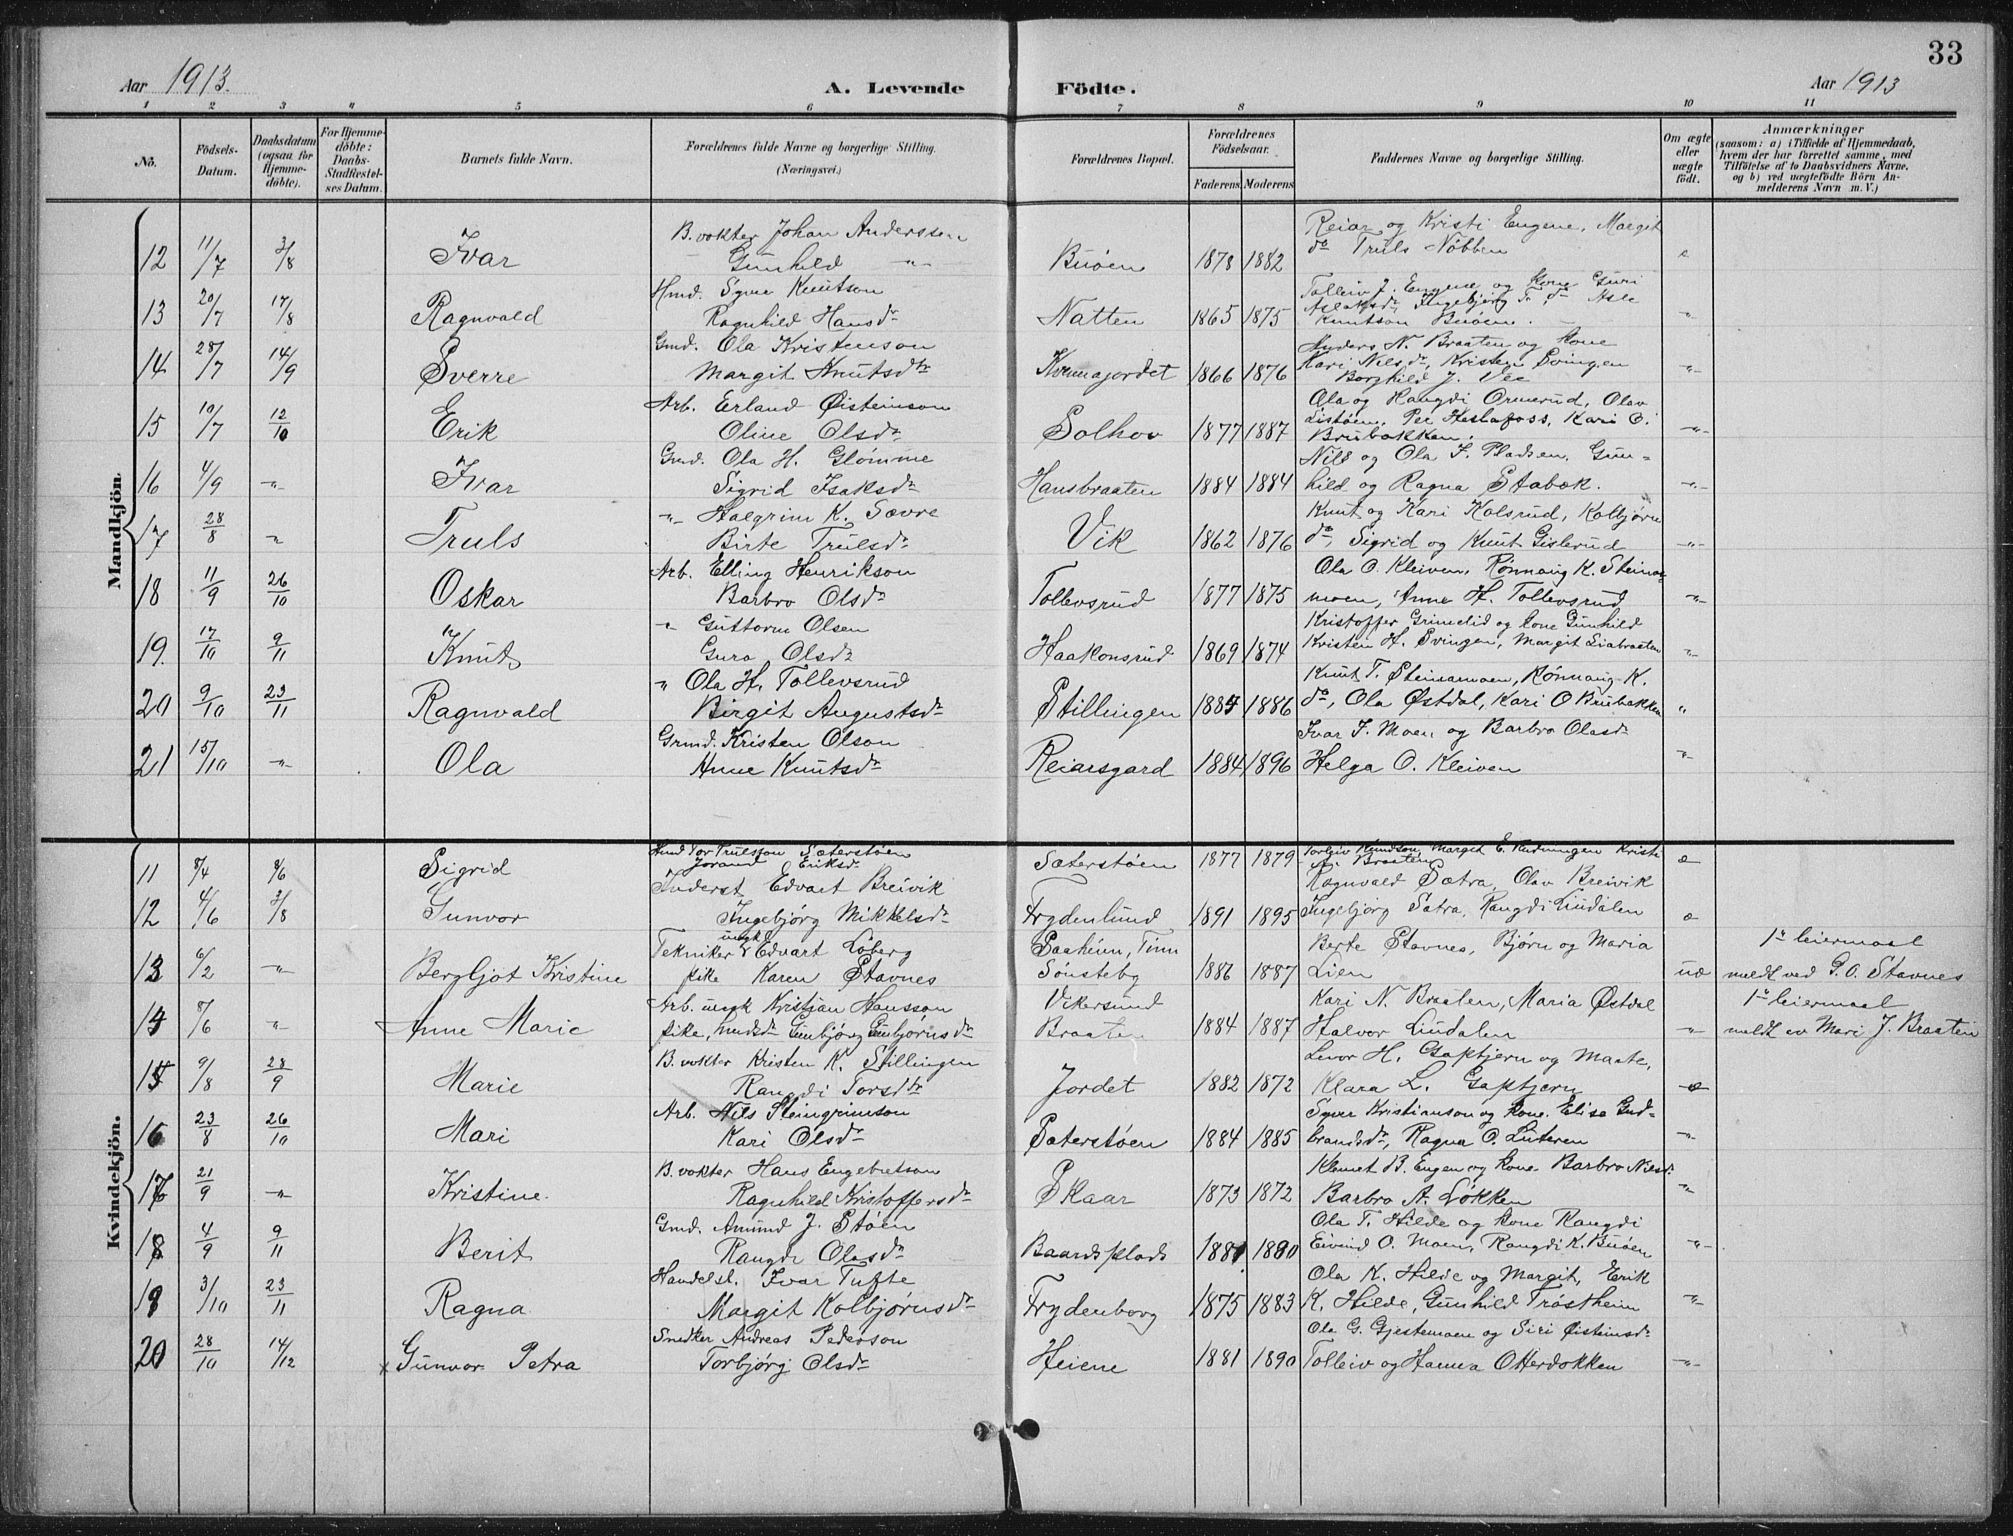 33
Aar 1913. A. Levende Födte. Aar 1913
1 2 3 4 5 6 7 8 9 10 11
No. Födsels-Datum. Daabsdatum (ogsaa for Hjemmedöbte). For Hjemmedöbte: Daabs-Stadfæstelses Datum. Barnets fulde Navn. Forældrenes fulde Navne og borgerlige Stilling. (Næringsvei.) Forældrenes Bopæl. Forældrenes Födselsaar. Faderens Moderens Faddernes Navne og borgerlige Stilling. Om ægte eller uægte födt. Anmærkninger (saasom: a) i Tilfælde af Hjemmedaab, hvem der har forrettet samme, med Tilföielse af to Daabsvidners Navne, og b) ved uægtefödte Börn Anmelderens Navn m. V.)
Mandkjön.
12 11/7 3/8 Ivar B.vokter Johan Anderssen Gunhild -"- Buöen 1878 1882 Reiar og Kristi Engene, Margit do Truls Nöbben e
13 20/7 17/8 Ragnvald Hmd. Syver Knutson Ragnhild Hansdr Natten 1865 1875 Tolleiv J. Engene og kone Guri Aslaksdr, Ingebjörg T. do Asle Knutson Buöen. -"-
14 28/7 14/9 Sverre Gmd. Ola Kristenson Margit Knutsdtr Kvernajordet 1866 1876 Anders N. Braaten og kone Kari Nilsdr, Kristen Svingen Borghild J. Vee -"-
15 10/7 12/10 Erik Arb. Erland Öisteinson Oline Olsdr Solhov 1877 1887 Ola og Hangdi Ormerud, Olav Listöen, Per Heslafoss, Kari O. Brubakken. -"-
16 4/9 -"- Ivar Gmd. Ola H. Glömme Sigrid Isaksdr Hansbraaten 1884 1884 Nils og Ola I. Pladsen, Gunhild og Ragna Stabæk. -"-
17 28/8 -"- Truls -"- Halgrim K. Sævre Birte Trulsdr Vik 1862 1876 Knut og Kari Kolsrud, Kolbjörn do, Sigrid og Knut Gislerud -"-
18 11/9 26/10 Oskar Arb. Elling Henrikson Barbro Olsdr Tollevsrud 1877 1875 Ola O. Kleiven, Rönnaug K. Steinamoen, Anne H. Tollevsrud -"-
19. 17/10 9/11 Knut " Guttorm Olsen Guro Olsdr Haakonsrud 1869 1874 Kristoffer Grimelid og kone Gunhild Kristen H. Svingen, Margit Liabraaten "
20 9/10 23/11 Ragnvald " Ola H. Tollevsrud Birgit Augustsdr Stillingen 1884 1886 Knut T. Steinamoen, Rönnaug K. do, Ola Östdal, Kari O Brubakken "
21 15/10 -"- Ola Grmd. Kristen Olson Anne Knutsdr Reiarsgard 1884 1896 Ivar I. Moen og Barbro Olasdr Helga O. Kleiven "
Kvindekjön.
11 8/4 8/6 Sigrid Hmd Tor Trulsson Sæterstöen Jorand Eriksdr Sæterstöen 1877 1879 Torleiv Knudson, Margit E. Kristi A. Braaten æ
12 4/6 3/8 Gunvor Inderst Edvart Breivik Ingebjörg Mikkelsdr Frydenlund 1891 1895 Ragnvald Sætra, Olav Breivik Ingebjörg Sætra, Rangdi Lindalen æ
13 6/2 -"- Bergljot Kristine Tekniker ungk Edvart Löberg pike Karen Stavnes Saaheim, Tinn Sönsteby 1886 1887 Berte Stavnes, Bjørn og Maria Lien uæ 1ste leiermaal meldt ved G.O. Stavnes
14 8/6 -"- Anne Marie Arb. ungk Kristjan Hansson pike, Gunbjörg Gunbjörnsdr Vikersund Braaten 1884 1887 Kari N. Braaten, Maria Östdal Halvor Lindalen " 1ste leiermaal meldt av Mari J. Braaten
15 9/8 28/9 Marie B. vokter Kristen K. Stillingen Rangdi Torsdtr Jordet 1882 1872 Levor H. Gaptjern og Maate, Klara L. Gaptjern æ
16 23/8 26/10 Mari Arb. Nils Steingrimson Kari Olsdr Sæterstöen 1884 1885 Syver Kristianson og kone Elise Gudbrandsdr, Ragna O. Linteren -"-
17 21/9 -"- Kristine. B.vokter Hans Engebretson Ragnhild Kristoffersdr Skaar 1873 1872 Klemet B. Engen og kone Barbro Nilsdr. Barbro A. Lökken -"-
18 4/9 9/11 Berit Gmd. Amund J. Stöen Rangdi Olasdr Baardsplads 1881 1880 Ola T. Hilde og kone Rangdi Eivind O. Moen, Rangdi K. Buöen -"-
19 3/10 23/11 Ragna Handelst. Ivar Tufte Margit Kolbjörnsdr Frydenborg 1875 1883 Ola K. Hilde og Margit, Erik K. Hilde, Gunhild Tröstheim -"-
20 28/10 14/12 × Gunvor Petra Snedker Andreas Pederson Torbjörg Olsdr Heiene 1881 1890 Ola G. Gjestemoen og Siri Öistinsdr Tolleiv og Hanna Otterdokken -"-